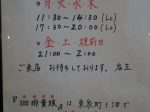 ◦月火水木
11:30~14:30(Lo)
17:30~21:00(Lo)
◦金土祝前日
21:00~2:00
ご来店 お待ちしております。店主
『珈琲貴族』は東泉町1で